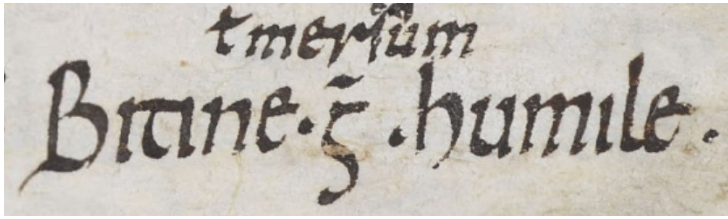 ɫ mersum
Bitine · ḡ · humile ·